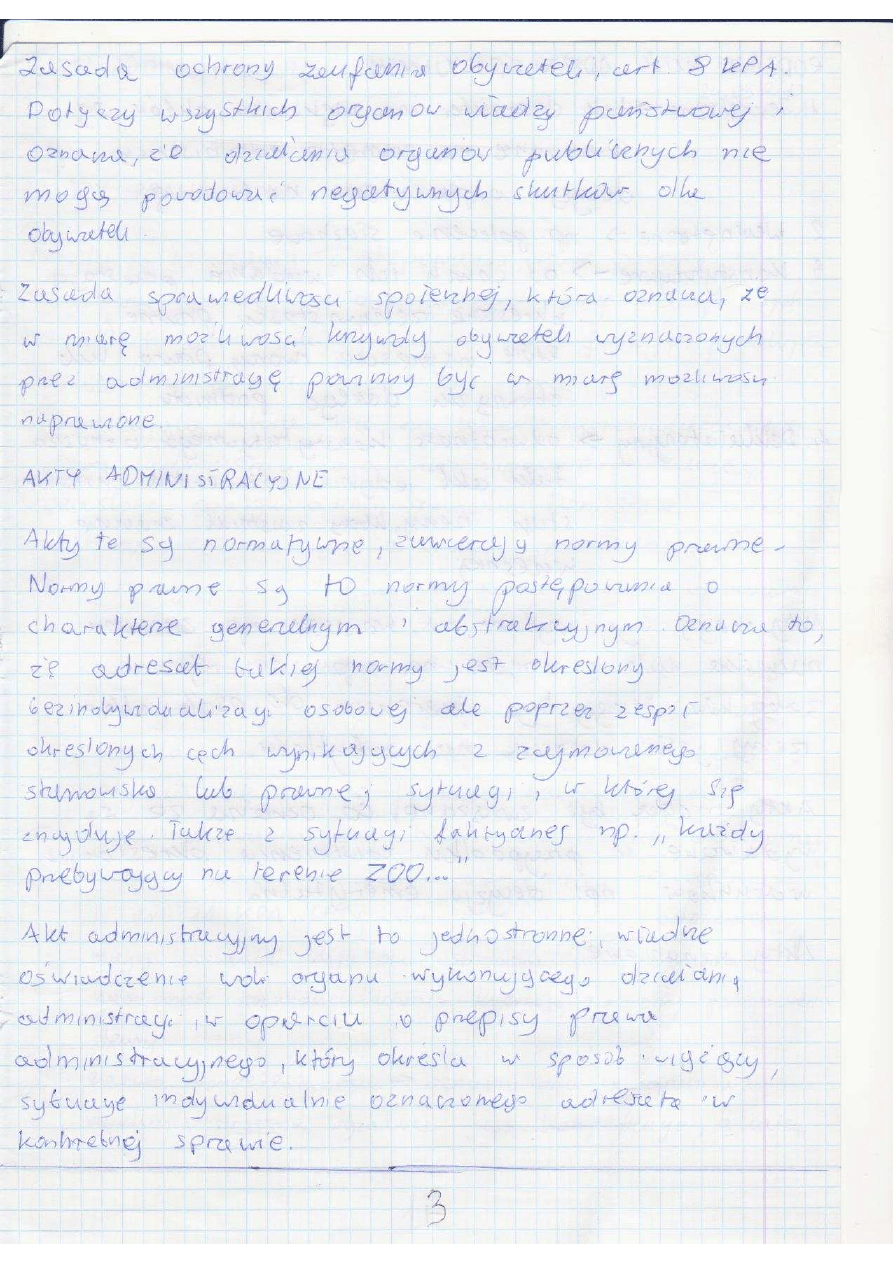 Zasada ochrony zaufania obywateli, art. 8 KPA.
Dotyczy wszystkich organów władzy państwowej i
oznana, że działania organów publicznych nie
mogą powodować negatywnych skutków dla
obywateli.
Zasada sprawiedliwości społecznej, która oznana, że
w miarę możliwości krzywdy obywateli wyznaczonych
przez administrację powinny być w miarę możliwości
naprawione.
AKTY ADMINISTRACYJNE
Akty te są normatywne, zawierają normy prawne.
Normy prawne są to normy postępowania o
charakterze generalnym i abstrakcyjnym. Oznacza to,
że adresat takiej normy jest określony
bezindywidualizacji osobowej ale poprzez zespół
określonych cech wynikających z zajmowanego
stanowiska lub prawnej sytuacji, w której się
znajduje. Także z sytuacji faktycznej np. „każdy
przebywający na terenie ZOO..."
Akt administracyjny jest to jednostronne, władne
oświadczenie woli organu wykonującego działania
administracji, w oparciu o przepisy prawa
administracyjnego, który określa w sposób wiążący,
sytuację indywidualnie oznaczonego adresata w
konkretnej sprawie.
3